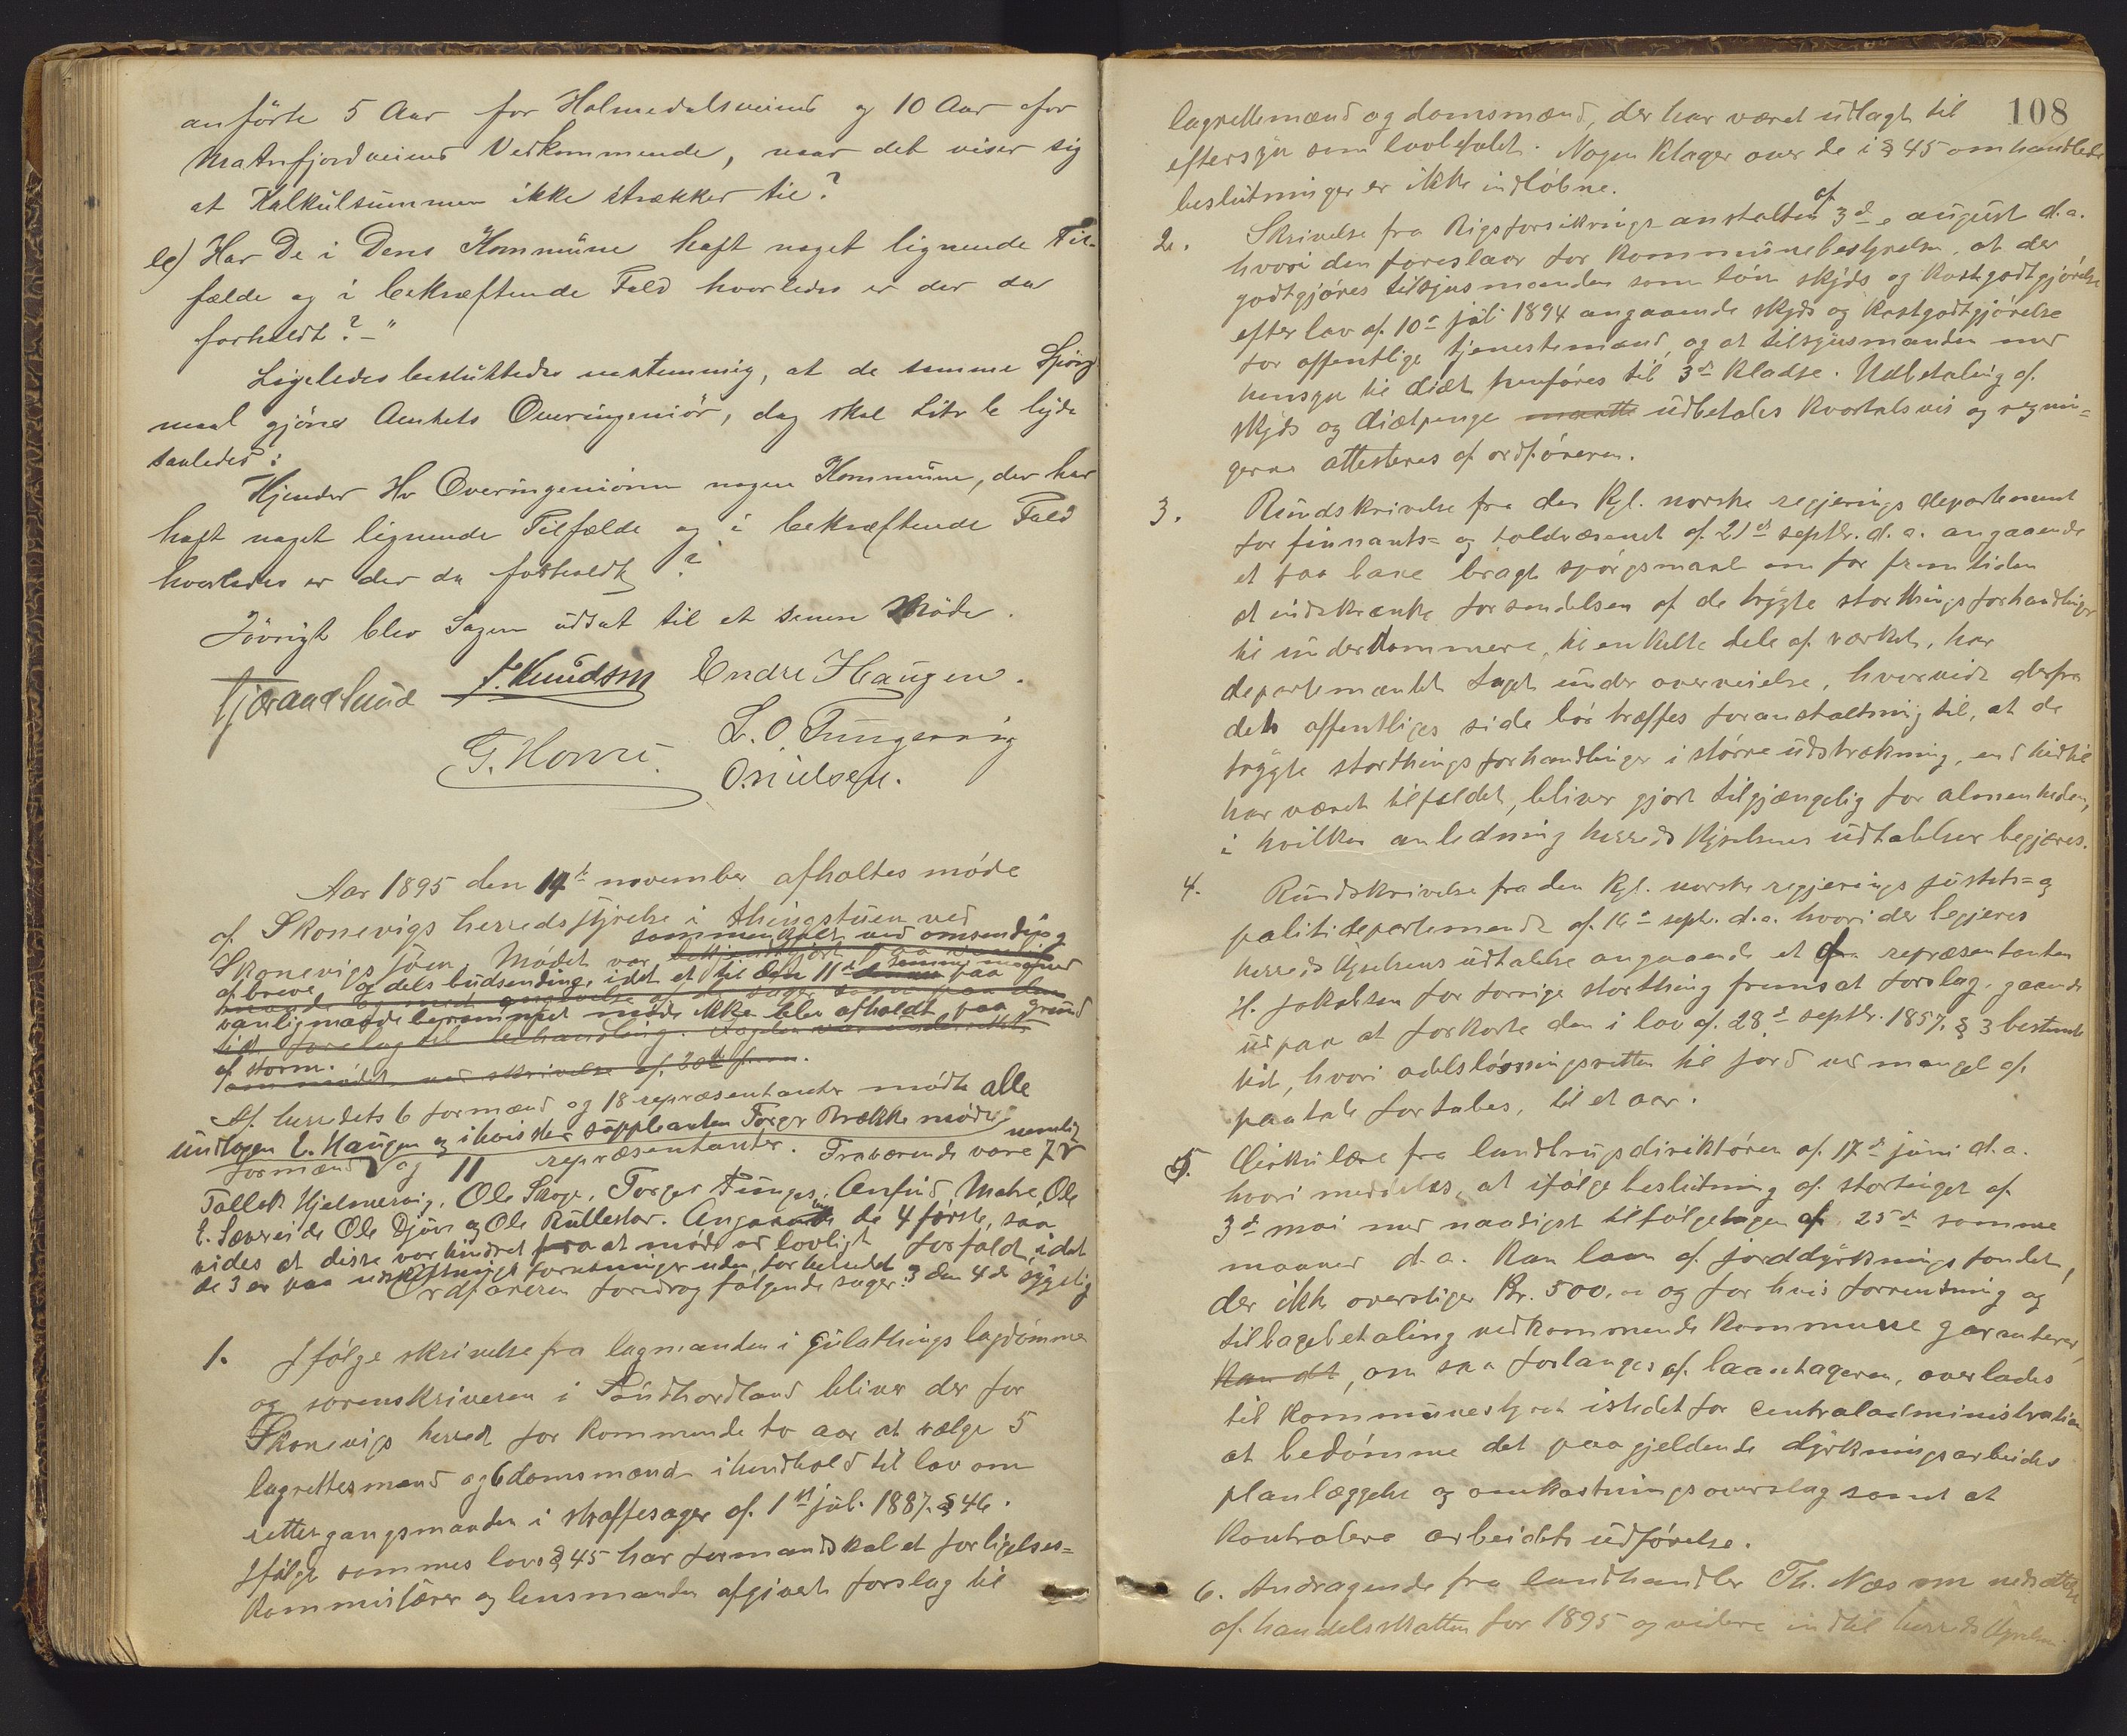 anførte 5 Aar for Holmedalsveiens og 10 Aar for
Matrefjordveiens Vedkommende, naar det viser sig
at Kalkulsummen ikke strækker til?
e) Har De i Deres Kommune haft noget lignende Til-
fælde og i bekræftende Fald hvorledes er der da
forholdt? - "
Ligeledes besluttedes enstemmig, at de samme Spørgs
maal gjøres Amtets Overingeniør, dog skal Litr e lyde
saaledes:
Kjender Hr Overingeniøren nogen Kommune, der har
haft noget lignende Tilfælde og i bekræftende Fald
hvorledes er der da forholdt?
Iøvrigt blev Sagen udsat til et senere Møde.
Tjeraadlund J. Knudsen Endre Haugen.
L. O. Tungesvig
T. Horne. O. Nielsen.
Aar 1895 den 14de november afholtes møde
af Skonevigs herredsstyrelse i thingstuen ved
Skonevigsjøen. Mødet var sammenkaldt ved omsending
af breve, og dels budsending, idet et til den 11te paa
vanlig maade berammet møde ikke blev afholdt paa grund
af storm.
Af herredets 6 formænd og 18 repræsentanter mødte alle
undtagen E. Haugen og i hvis sted suppleanten Torger Brække møder
formænd og 11 repræsentanter. Fraværende vare 7 nemlig
Tallek Hjelmervig, Ole Skoge, Torger Tunges, Anfind Matre, Ole
E. Sævereide Ole Djuve og Ole Rullestad. Angaaende de 4 første, saa
vides at disse var hindret fra at møde ved lovligt forfald, idet
de 3 er paa udskiftnings forretninger uden for herredet og den 4de sygelig
Ordføreren foredrog følgende sager:
1. Ifølge skrivelse fra lagmanden i Gulathings lagdømme
og sorenskriveren i Søndhordland bliver der for
Skonevigs herred for kommende to aar at vælge 5
lagrettesmænd og 6 domsmænd i henhold til lov om
rettergangsmaaden i straffesager af 1ste juli 1887. § 46.
Ifølge sammes lovs § 45 har formandskabet forligelses-
kommisærer og lensmanden afgivet forslag til
108
lagrettemænd og domsmænd, der har været udlagt til
eftersyn som lovbefalet. Nogen klager over de i § 45 omhandlede
beslutninger er ikke indløbne.
2. Skrivelse fra Rigsforsikringsanstalten af 3de august d.a.
hvori den foreslaar for kommunebestyrelsen, at der
godtgjøres tilsynsmanden som løn skyds og kostgodtgjørelse
efter lov af 10de juli 1894 angaaende skyds og kostgodtgjørelse
for offentlige tjenestemænd, og at tilsynsmanden med
hensyn til diæt henføres til 3de klasse. Udbetaling af
skyds og diætpenge maatte udbetales kvartalsvis og regnin-
gerne attesteres af ordføreren.
3. Rundskrivelse fra den Kgl. norske regjerings departement
for finnants- og toldvæsenet af 21de septbr. d.a. angaaende
et paa bane bragt spørgsmaal om for fremtiden
at indskrænke forsendelsen af de trygte storthingsforhandlinger
til underdommere, til enkelte dele af værket, har
departementet taget under overveielse, hvorvidt derfra
det offentliges side bør træffes foranstaltning til, at de
trygte storthingsforhandlinger i større udstrækning, end hidtil
har været tilfældet, bliver gjort tilgjængelig for almenheden,
i hvilken anledning herredsstyrelsens udtalelser begjæres.
4. Rundskrivelse fra den Kgl. norske regjerings justits- og
politidepartement af 16de septr. d.a. hvori der begjeres
herredsstyrelsens udtalelse angaaende et fra repræsentanten
H. Jakobsen for forrige storthing fremsat forslag, gaaende
ud paa at forkorte den i lov af 28de septbr. 1857. § 3 bestemte
tid, hvori odelsløsningsretten til jord ved mangel af
paatale fortabes, til et aar.
5. Cirkulære fra landbrugsdirektøren af 17de juni d.a.
hvori meddeles, at ifølge beslutning af stortinget af
3de mai med naadigst tilføgelse af 25de samme
maaned d.a. kan laan af jorddyrkningsfondet,
der ikke overstiger Kr. 500,00 og for hvis forrentning og
tilbagebetaling vedkommende kommune garanterer,
kan det, om saa forlanges af laantageren, overlades
til kommunestyret istedet for centraladministrationen
at bedømme det paagjeldende dyrkningsarbeides
planlæggelse og omkostningsoverslag samt at
kontrolere arbeidets udførelse.
6. Andragende fra landhandler Th. Næs om nedsættelse
af handelsskatten for 1895 og videre indtil herredsstyrelsen